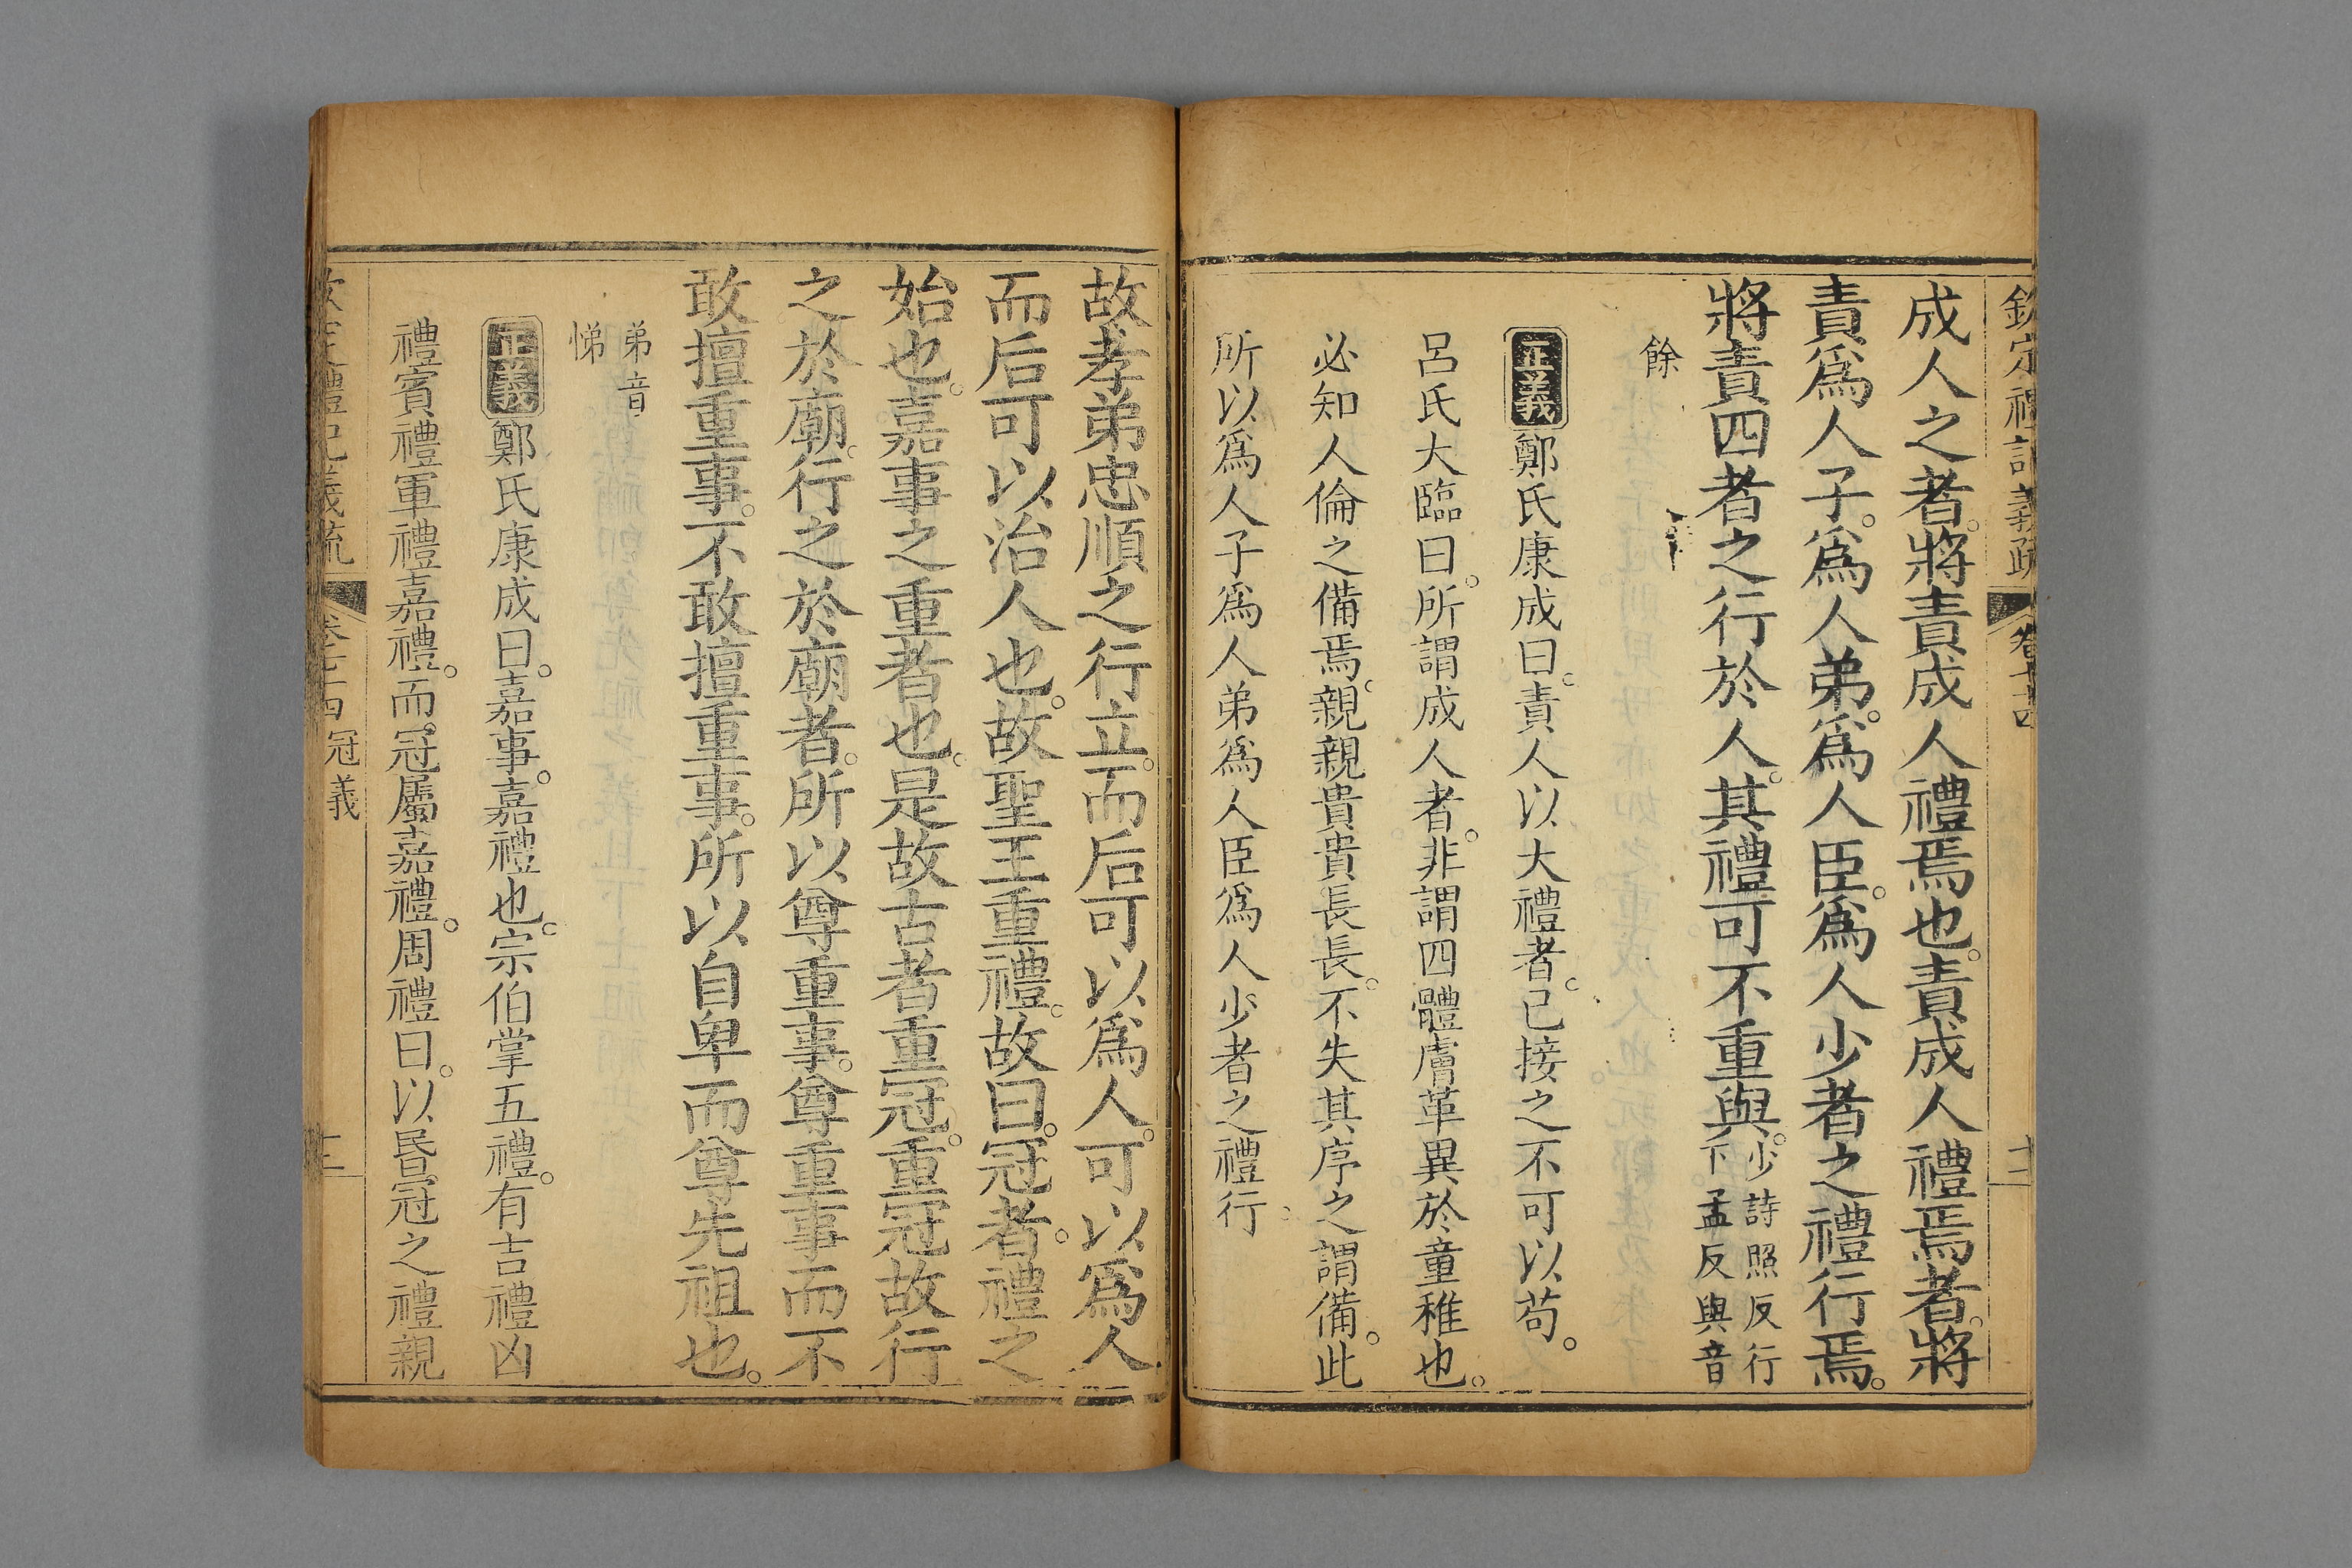 欽定禮記義疏 卷七十四 十二
成人之者。將責成人禮焉也。責成人禮焉者。將
責爲人子。爲人弟。爲人臣。爲人少者之禮行焉。
將責四者之行於人。其禮可不重與。少詩照反行
下孟反與音
餘
正義鄭氏康成曰。責人以大禮者。己接之不可以苟。
呂氏大臨曰。所謂成人者。非謂四體膚革異於童稚也。
必知人倫之備焉。親親貴貴長長。不失其序之謂備。此
所以爲人子爲人弟爲人臣爲人少者之禮行。
故孝弟忠順之行立。而后可以爲人。可以爲人
而后可以治人也。故聖王重禮。故曰。冠者。禮之
始也。嘉事之重者也。是故古者重冠。重冠故行
之於廟。行之於廟者。所以尊重事。尊重事而不
敢擅重事。不敢擅重事。所以自卑而尊先祖也。
弟音
悌
正義鄭氏康成曰。嘉事。嘉禮也。宗伯掌五禮。有吉禮凶
禮賓禮軍禮嘉禮。而冠屬嘉禮。周禮曰。以昬冠之禮親
欽定禮記義疏 卷七十四 冠義 十二